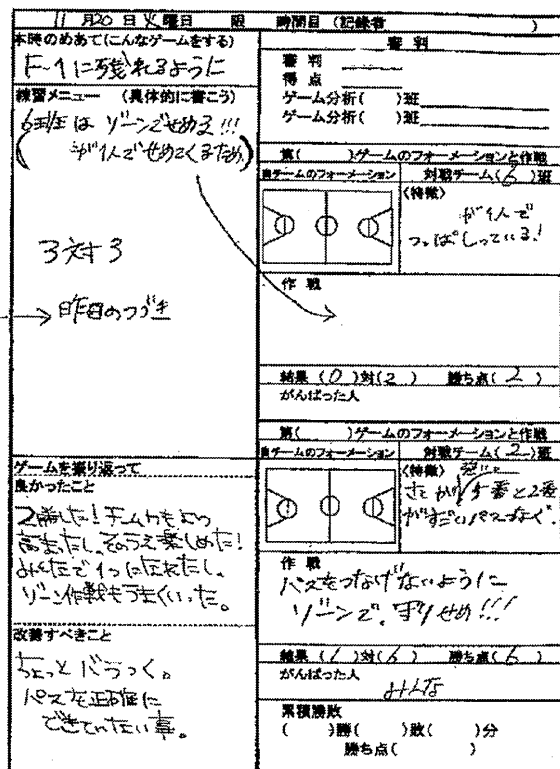 11月20日火曜日 限 時間目(記録者 )
本時のめあて(こんなゲームをする)
F-1に残れるように
練習メニュー (具体的に書こう)
6班は ゾーンでせめる!!!
が1人でせめてくるため
3対3
昨日のつづき
ゲームを振り返って
良かったこと
2勝した!チーム力もより
高まったし、そのうえ楽しめた!
みんなで1つになれたし、
ゾーン作戦もうまくいった。
改善すべきこと
ちょっとバラつく。
パスを正確に
できていない事。
審判
審判
得点
ゲーム分析( )班
ゲーム分析( )班
第( )ゲームのフォーメーションと作戦
自チームのフォーメーション 対戦チーム(6)班
〈特徴〉
が1人で
つっぱしっている!
作戦
結果(0)対(2)勝ち点(2)
がんばった人
第( )ゲームのフォーメーションと作戦
自チームのフォーメーション 対戦チーム(2)班
〈特徴〉
5番と2番
がすごいパスつなぐ。
作戦
パスをつなげないように
ゾーンで、せめ!!!
結果(1)対(6) 勝ち点(6)
がんばった人
みんな
累積勝敗
( )勝( )敗( )分
勝ち点( )